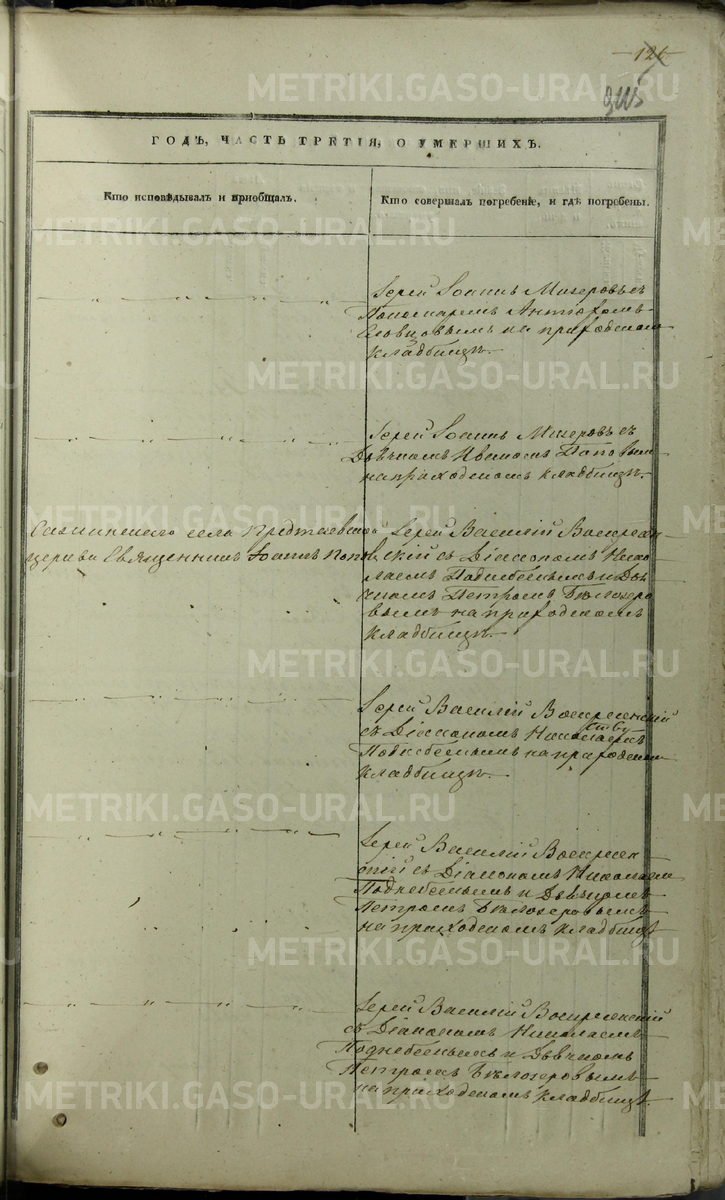 126
ГОДѢ, ЧАСТЬ ТРЕТІЯ, О УМЕРШИХЪ.
Кто исповѣдывалъ и пріобщалъ.
Кто совершалъ погребеніе, и гдѣ погребены.
Іерей Іоаннъ Мизеровъ съ
Пономаремъ
Словцовымъ на приходскомъ
кладбищѣ.
Іерей Іоаннъ Мизеровъ съ
Дьячкомъ Иваномъ Поповым
на приходскомъ кладбищѣ.
села Предтечевской
церкви Священникъ Іоаннъ Попов
Іерей Василій Воскресен
скій съ Діакономъ Нико
лаемъ Поднебеснымъ и Дья
чкомъ Петромъ Бѣлозеро
вымъ на приходскомъ
кладбищѣ.
Іерей Василій Воскресенскій
съ Діакономъ Николаемъ
Поднебеснымъ на приходском
кладбищѣ.
Іерей Василій Воскресен
скій съ Діакономъ Николаем
Поднебеснымъ и Дьячкомъ
Петромъ Бѣлозеровымъ
на приходскомъ кладбищѣ
Іерей Василій Воскресенскій
съ Діакономъ Николаемъ
Поднебеснымъ и Дьячкомъ
Петромъ Бѣлозеровымъ
на приходскомъ кладбищѣ.
METRIKI.GASO-URAL.RU